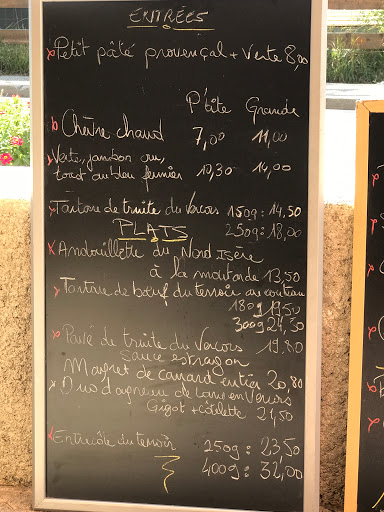 ENTRÉES
Petit pâté provençal + verte 8,00
P'tite Grande
Chèvre chaud 7,00 11,00
Verte, jambon cru,
toast au bleu fermier 10,30 14,00
Tartare de truite du Vercors 150g: 14,50
250g: 18,00
PLATS
Andouillette du Nord Isère
à la moutarde 13,50
Tartare de bœuf du terroir au couteau
180g 19,50
300g 24,50
Pavé de truite du Vercors 19,80
Sauce estragon
Magret de canard entier 20,80
Duo d'agneau de Lans en Vercors
Gigot + côtelette 21,50
Entrecôte du terroir 250g: 23,50
400g: 32,00